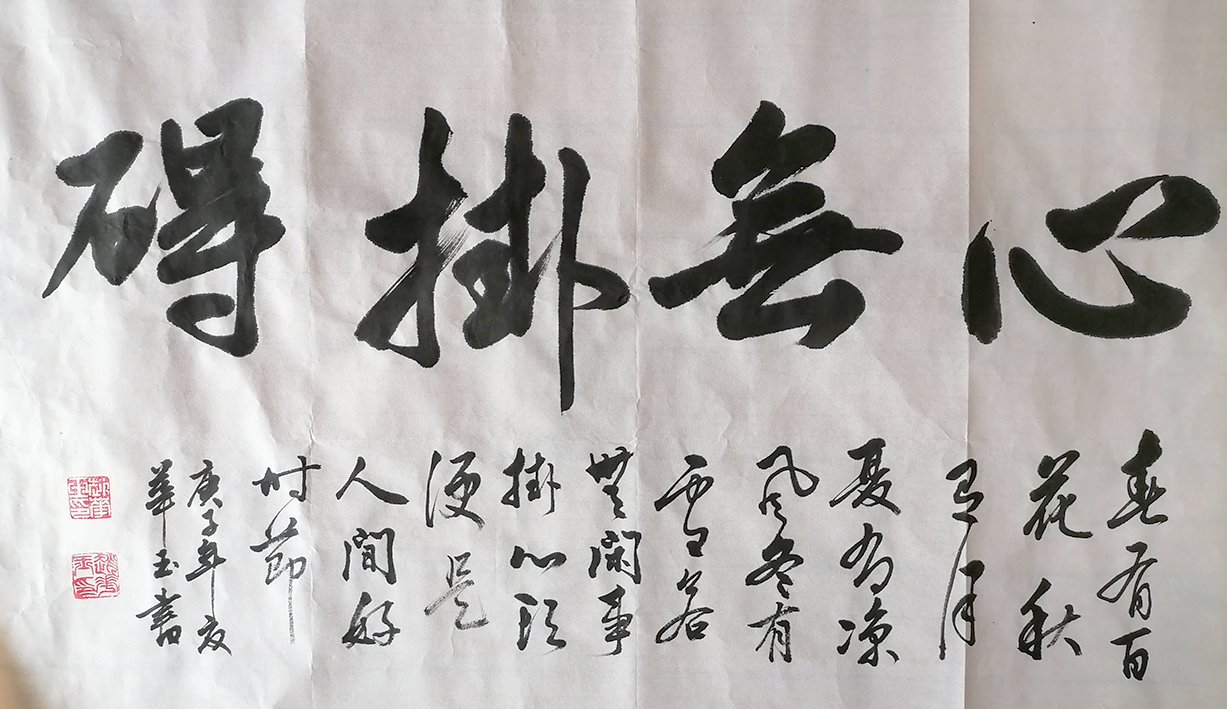 心無掛礙
春有百
花秋
有月
夏有凉
風冬有
雪若
無閑事
掛心頭
便是
人間好
时節
庚子年夏
華玉書